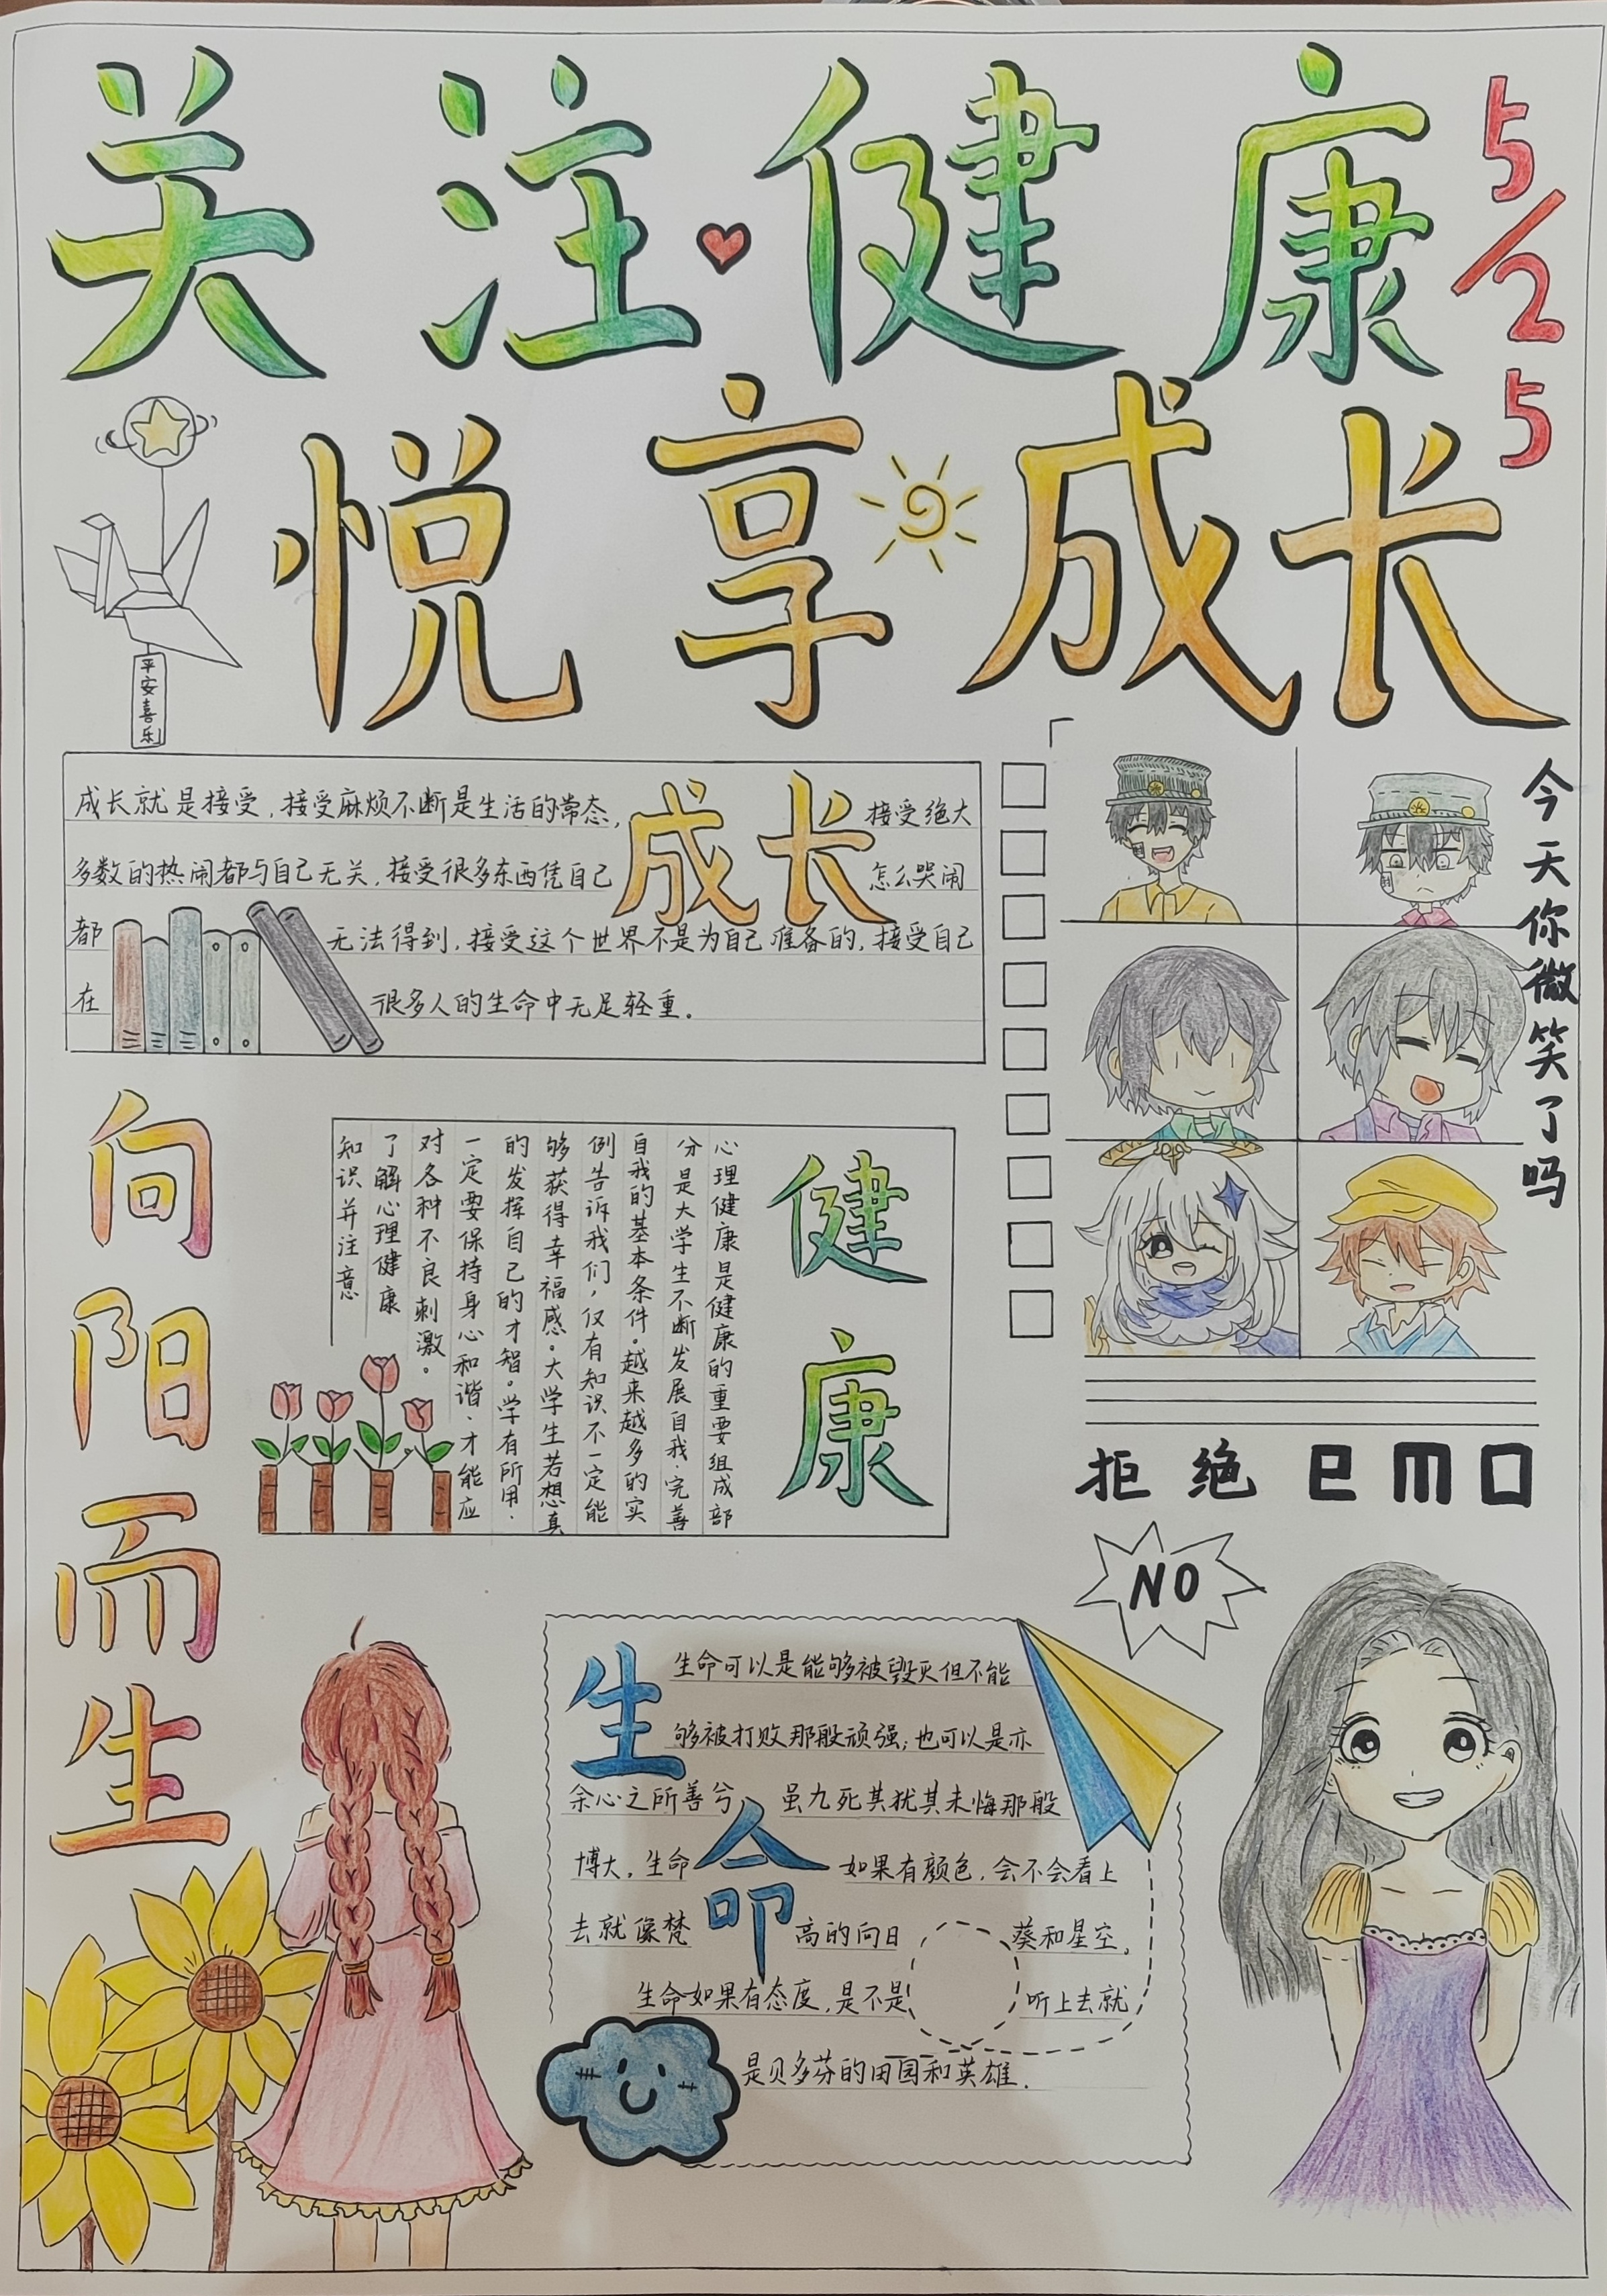 关注健康
5/25
悦享成长
平安喜乐
成长就是接受,接受麻烦不断是生活的常态,接受绝大
多数的热闹都与自己无关,接受很多东西凭自己怎么哭闹
都无法得到,接受这个世界不是为自己准备的,接受自己
在很多人的生命中无足轻重.
成长
今天你微笑了吗
向阳而生
健康
心理健康是健康的重要组成部
分是大学生不断发展自我.完善
自我的基本条件。越来越多的实
例告诉我们,仅有知识不一定能
够获得幸福感。大学生若想真
的发挥自己的才智。学有所用.
一定要保持身心和谐.才能应
对各种不良刺激。
了解心理健康
知识并注意
拒绝emo
NO
生命
生命可以是能够被毁灭但不能
够被打败那般顽强;也可以是亦
余心之所善兮 虽九死其犹其未悔那般
博大.生命如果有颜色,会不会看上
去就像梵高的向日葵和星空,
生命如果有态度,是不是听上去就
是贝多芬的田园和英雄.